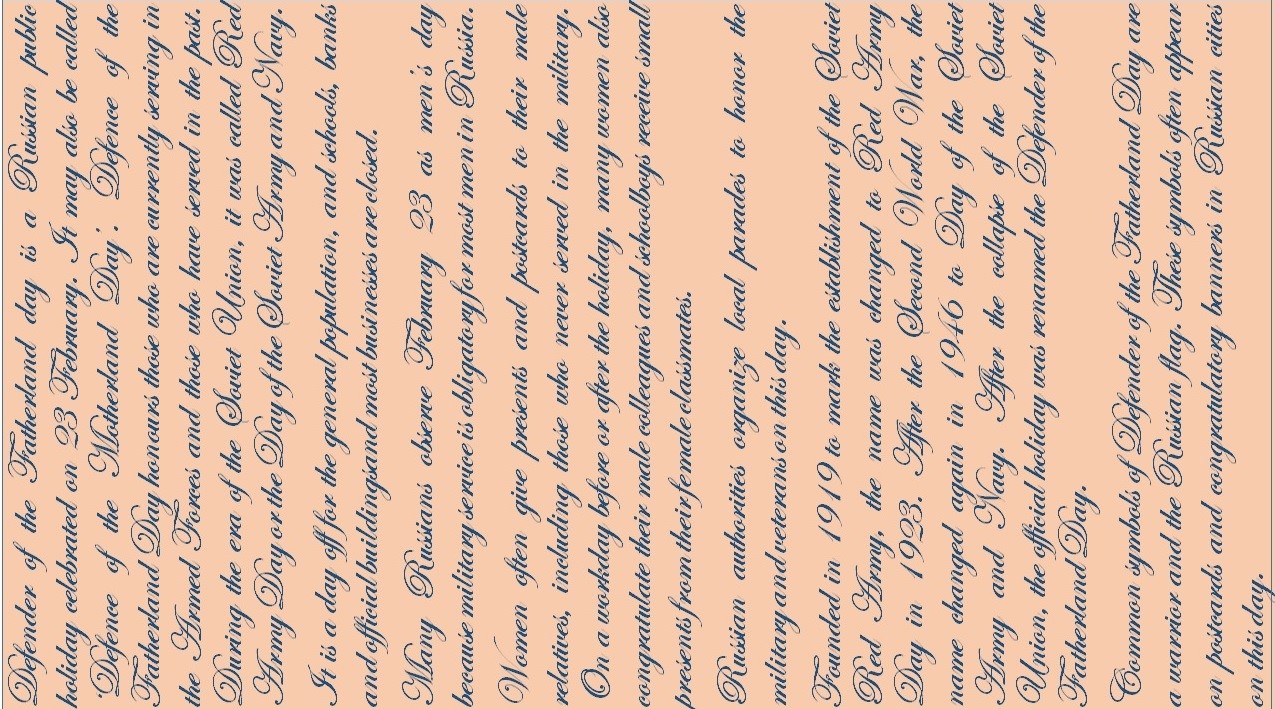 Defender of the Fatherland day is a Russian public
holiday celebrated on 23 February. It may also be called
'Defence of the Motherland Day'. Defence of the
Fatherland Day honours those who are currently serving in
the Armed Forces and those who have served in the past.
During the era of the Soviet Union, it was called Red
Army Day or the Day of the Soviet Army and Navy.
It is a day off for the general population, and schools, banks
and official buildings and most businesses are closed.
Many Russians observe February 23 as men's day
because military service is obligatory for most men in Russia.
Women often give presents and postcards to their male
relatives, including those who never served in the military.
On a workday before or after the holiday, many women also
congratulate their male colleagues and schoolboys receive small
presents from their female classmates.
Russian authorities organize local parades to honor the
military and veterans on this day.
Founded in 1919 to mark the establishment of the Soviet
Red Army, the name was changed to Red Army
Day in 1923. After the Second World War, the
name changed again in 1946 to Day of the Soviet
Army and Navy. After the collapse of the Soviet
Union, the official holiday was renamed the Defender of the
Fatherland Day.
Common symbols of Defender of the Fatherland Day are
a warrior and the Russian flag. These symbols often appear
on postcards and congratulatory banners in Russian cities
on this day.